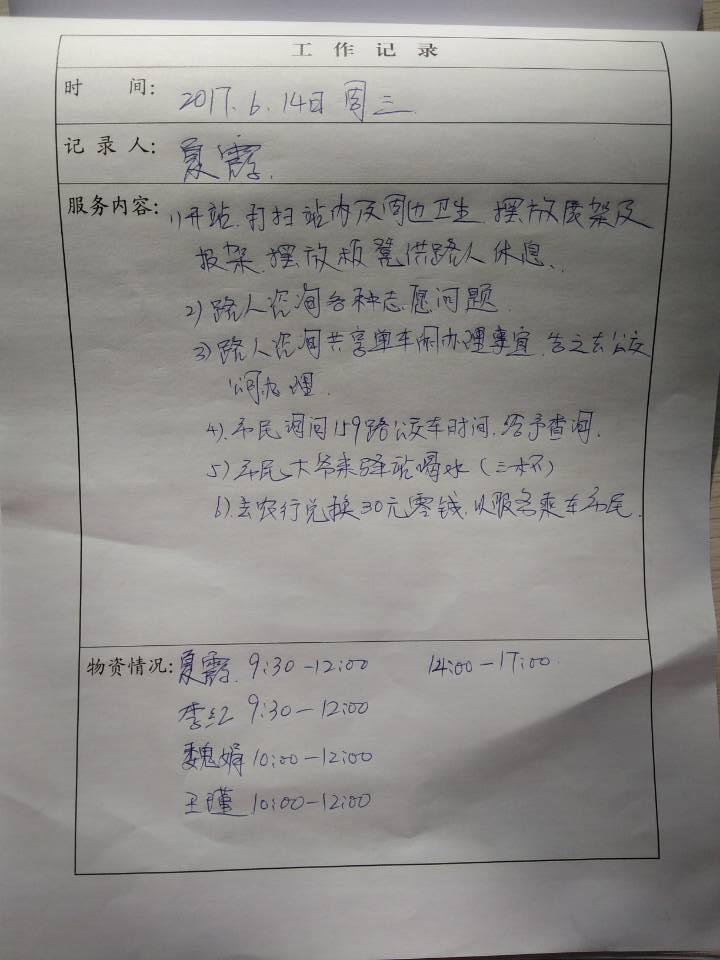 工作记录
时 间: 2017.6.14日 周三.
记录人: 夏霞.
服务内容: 1)开站.打扫站内及周边卫生.摆放展架及
报架.摆放板凳供路人休息.
2)路人咨询各种志愿问题.
3)路人咨询共享单车闲办理事宜.告之去公交
公司办理.
4).市民询问159路公交车时间.给予查询.
5)市民大爷来驿站喝水(三杯)
6).去农行兑换30元零钱.以服务乘车市民.
物资情况: 夏霞. 9:30-12:00 14:00-17:00.
李红 9:30-12:00
魏娟 10:00-12:00
王瑾 10:00-12:00